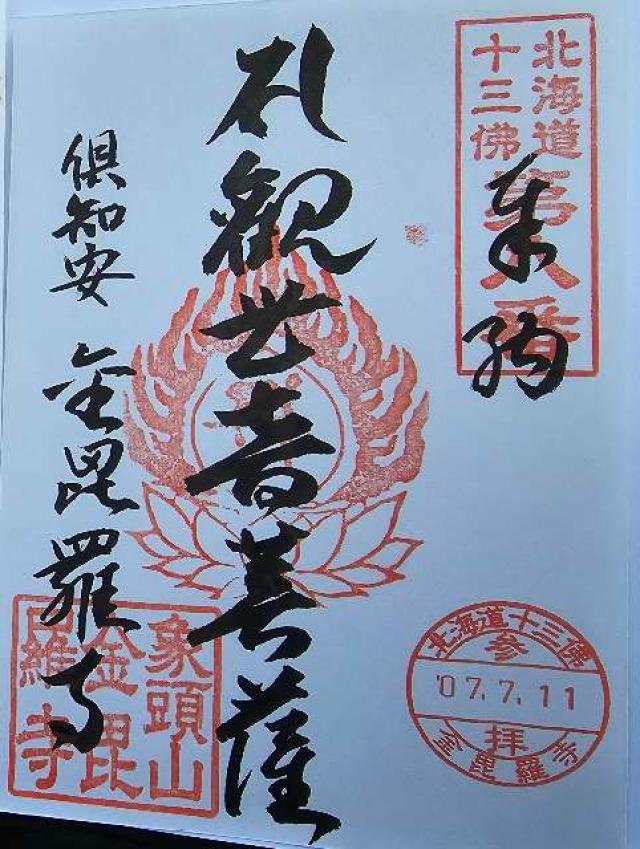 北海道
十三佛
第八番
奉納
札観世音菩薩
倶知安 金毘羅寺
象頭山
金毘
羅寺
北海道十三佛
参
'07.7.11
拝
金毘羅寺